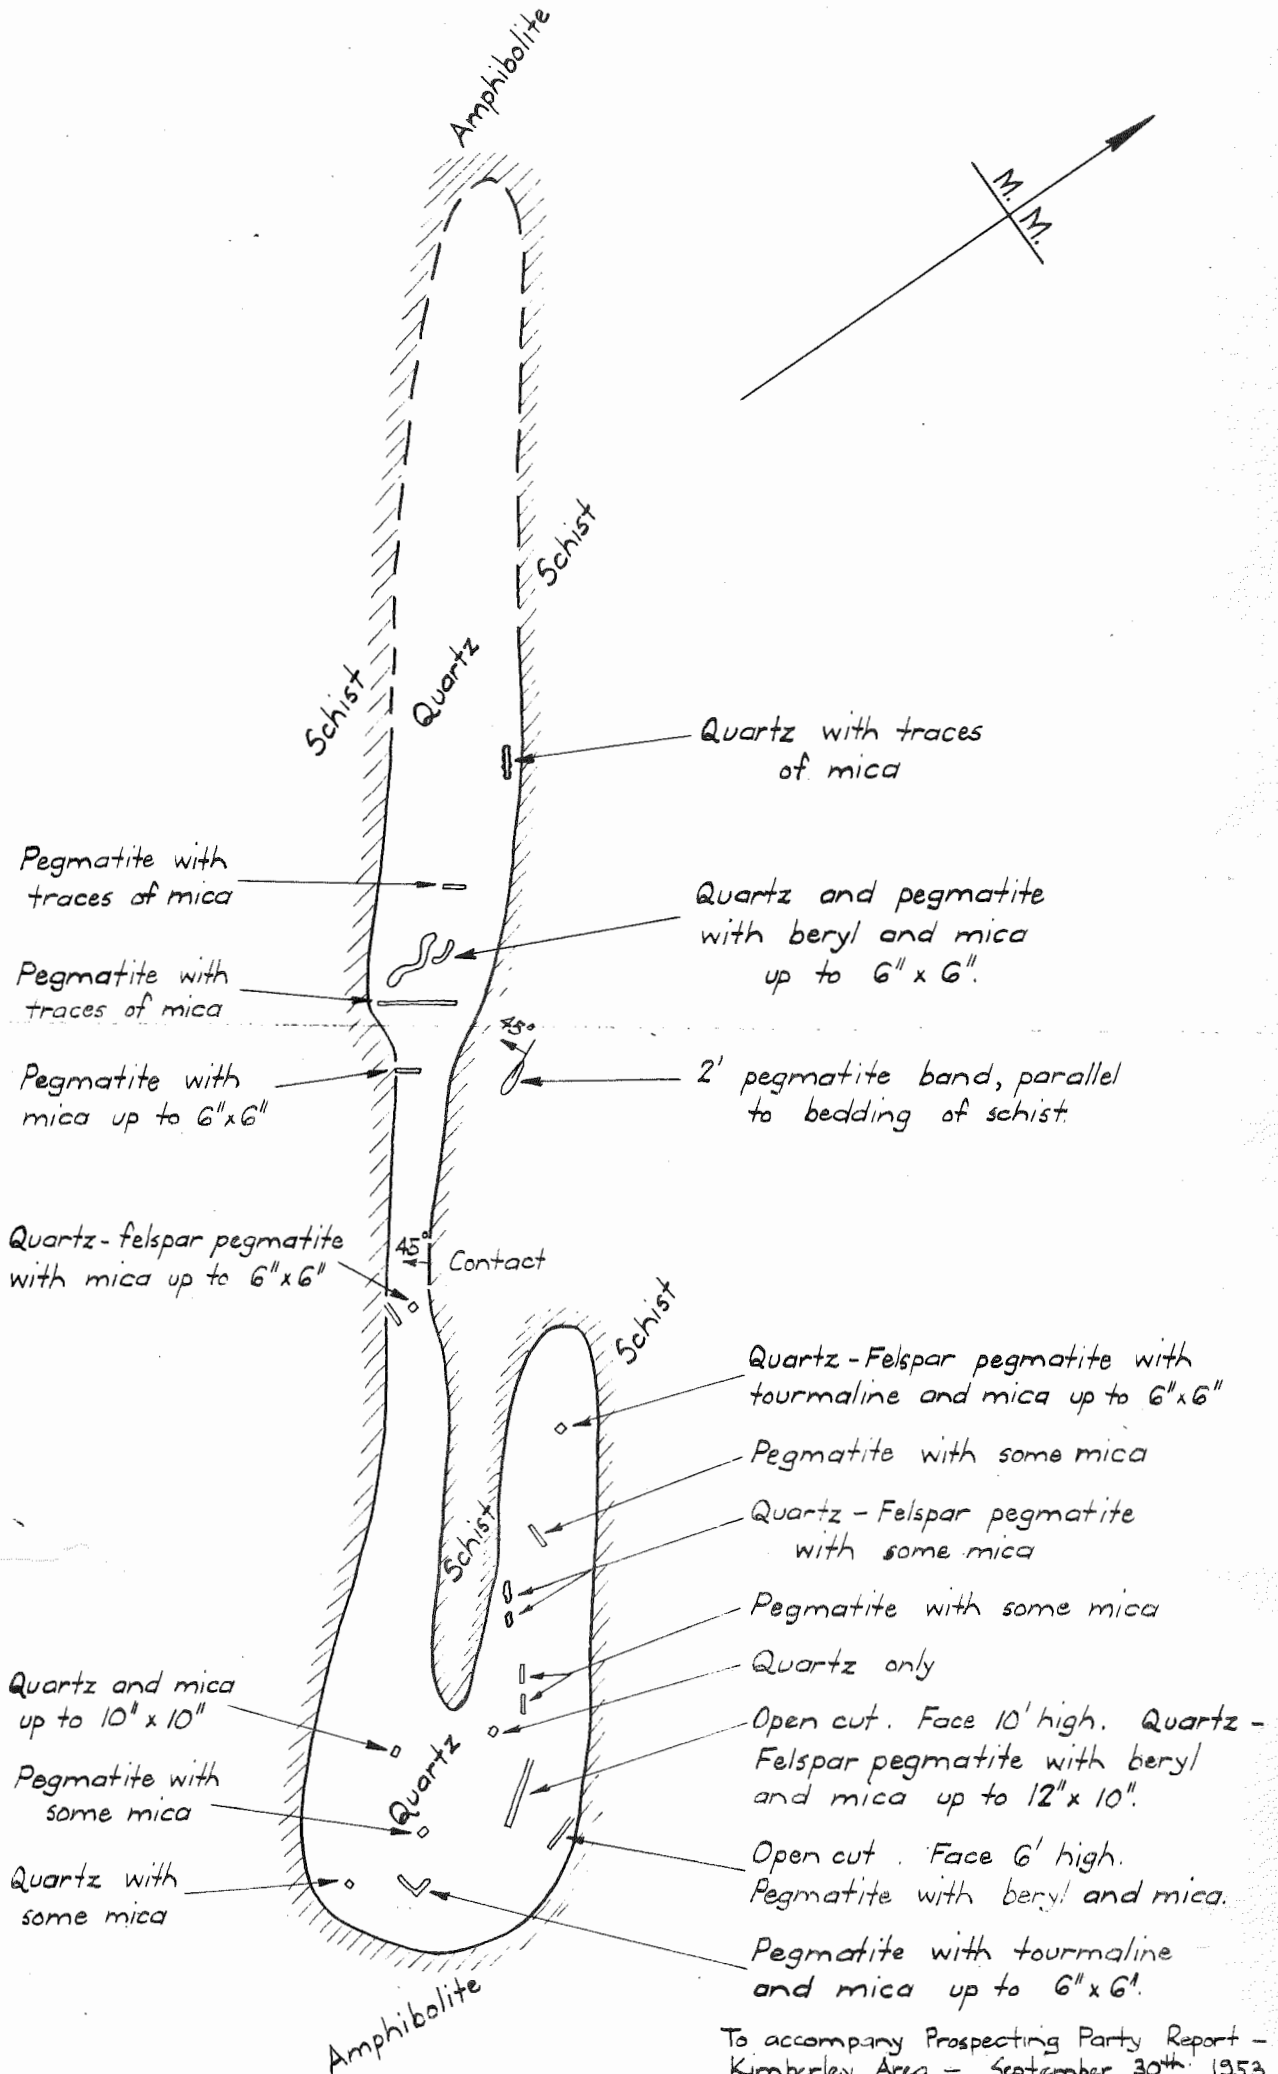 Amphibolite
M. M.
Schist
Schist
Quartz
Quartz with traces
of mica
Pegmatite with
traces of mica
Quartz and pegmatite
with beryl and mica
up to 6" x 6".
Pegmatite with
traces of mica
45°
Pegmatite with
mica up to 6"x6"
2' pegmatite band, parallel
to bedding of schist.
Quartz-felspar pegmatite
with mica up to 6"x6"
45°
Contact
Schist
Quartz-Felspar pegmatite with
tourmaline and mica up to 6"x6"
Pegmatite with some mica
Schist
Quartz-Felspar pegmatite
with some mica
Pegmatite with some mica
Quartz only
Quartz and mica
up to 10" x 10"
Open cut. Face 10' high. Quartz-
Felspar pegmatite with beryl
and mica up to 12"x 10".
Quartz
Pegmatite with
some mica
Open cut. Face 6' high.
Pegmatite with beryl and mica.
Quartz with
some mica
Pegmatite with tourmaline
and mica up to 6" x 6".
Amphibolite
To accompany Prospecting Party Report -
Kimberley Area - September 30th 1953